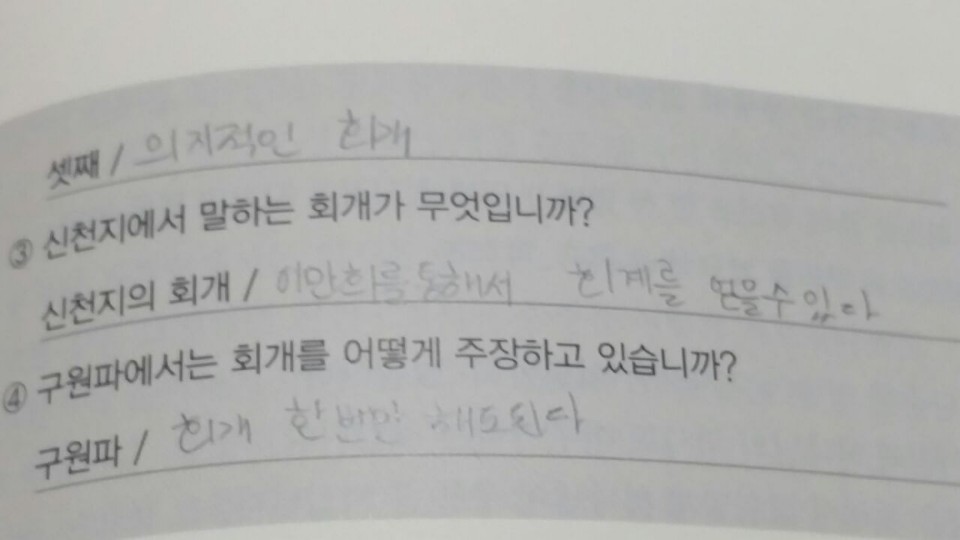 셋째 / 의지적인 회개
③ 신천지에서 말하는 회개가 무엇입니까?
신천지의 회개 / 이만희를 통해서 회계를 얻을수있다
④ 구원파에서는 회개를 어떻게 주장하고 있습니까?
구원파 / 회개 한번만 해도된다